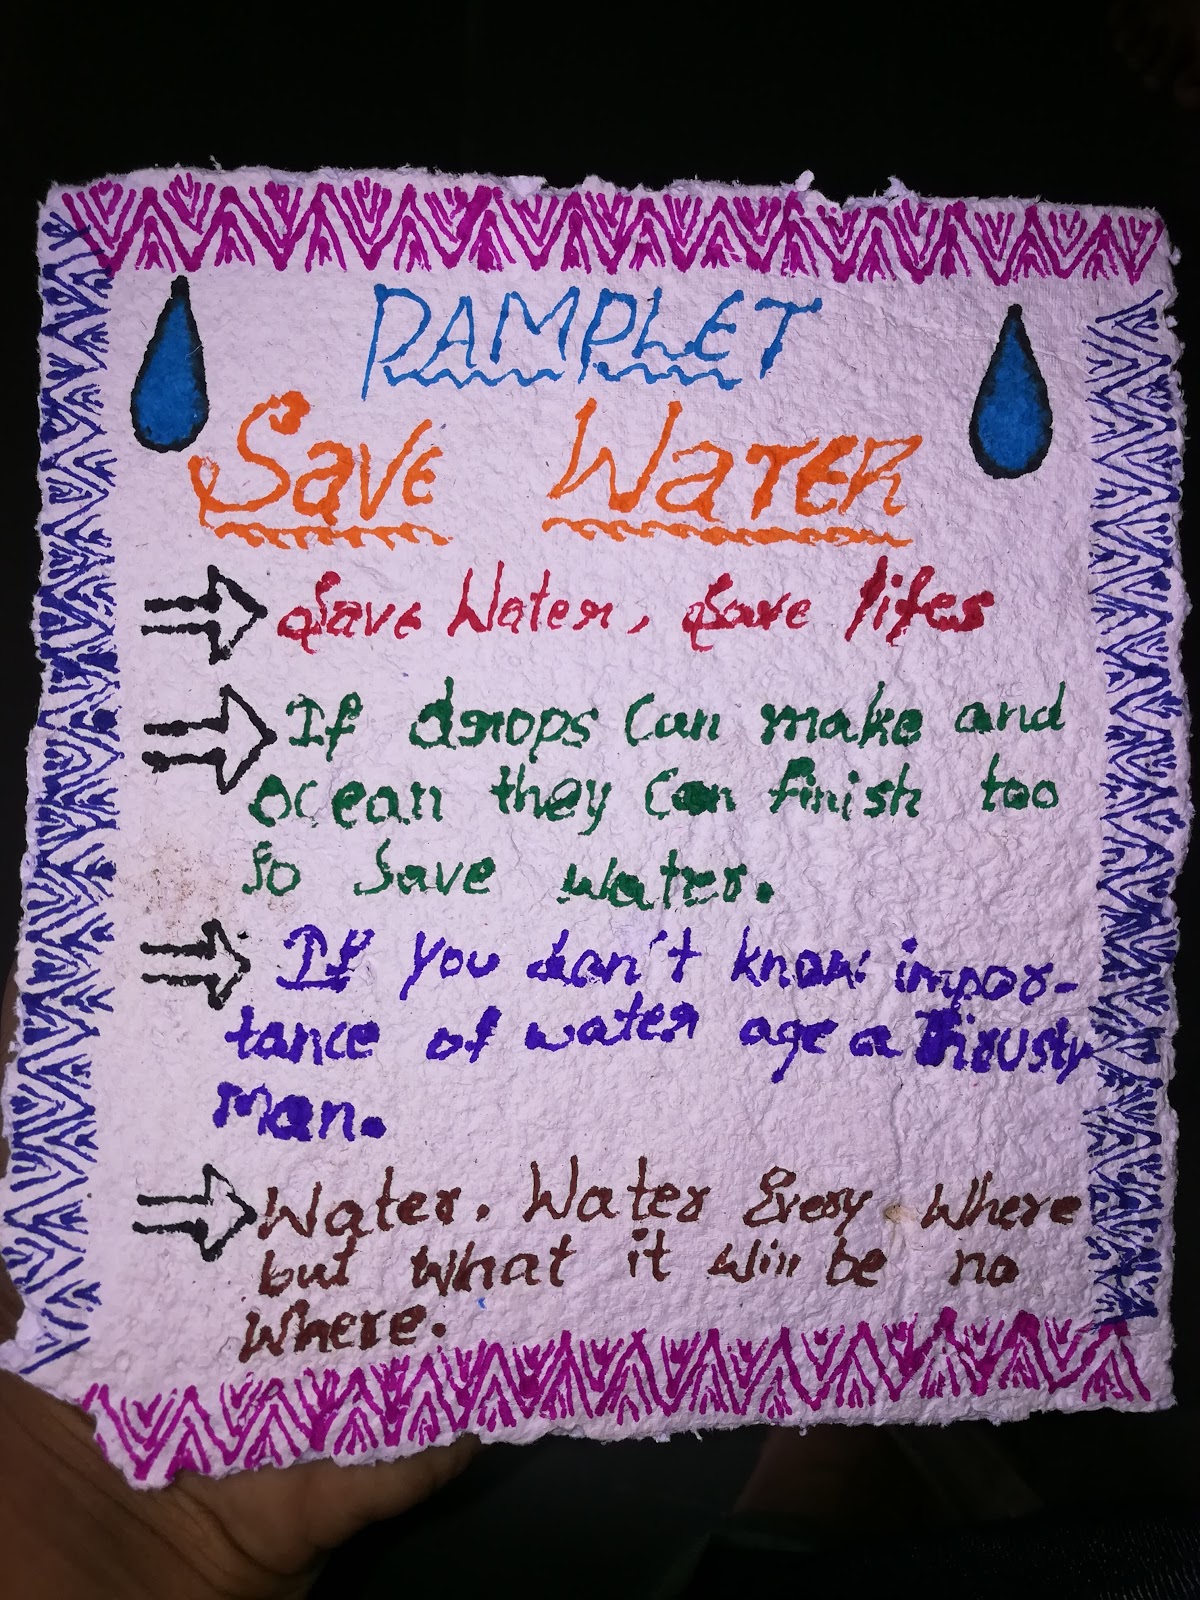 PAMPLET
Save Water
Save Water, Save lifes
If drops Can make and
ocean they Can finish too
So Save water.
If you don't know impor-
tance of water age a Thirusty
Man.
Water. Water Every Where
but what it will be no
where.